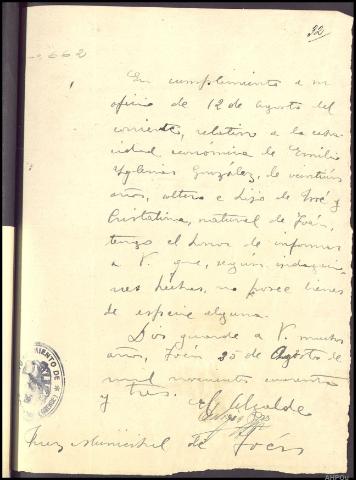 32
662
En cumplimiento a su
oficio de 12 de agosto del
corriente, relativo a la capa-
cidad económica de Emilio
Yglesias González, de veintiún
años, soltero e hijo de José y
Cristalina, natural de Joás,
tengo el honor de informar
a V. que, según indagacio-
nes hechas, no posee bienes
de especie alguna.
Dios guarde a V. muchos
años, 25 de Agosto de
mil novecientos cuarenta
y tres.
El Alcalde
Juez Municipal de
MIENTO DE
AHPOU